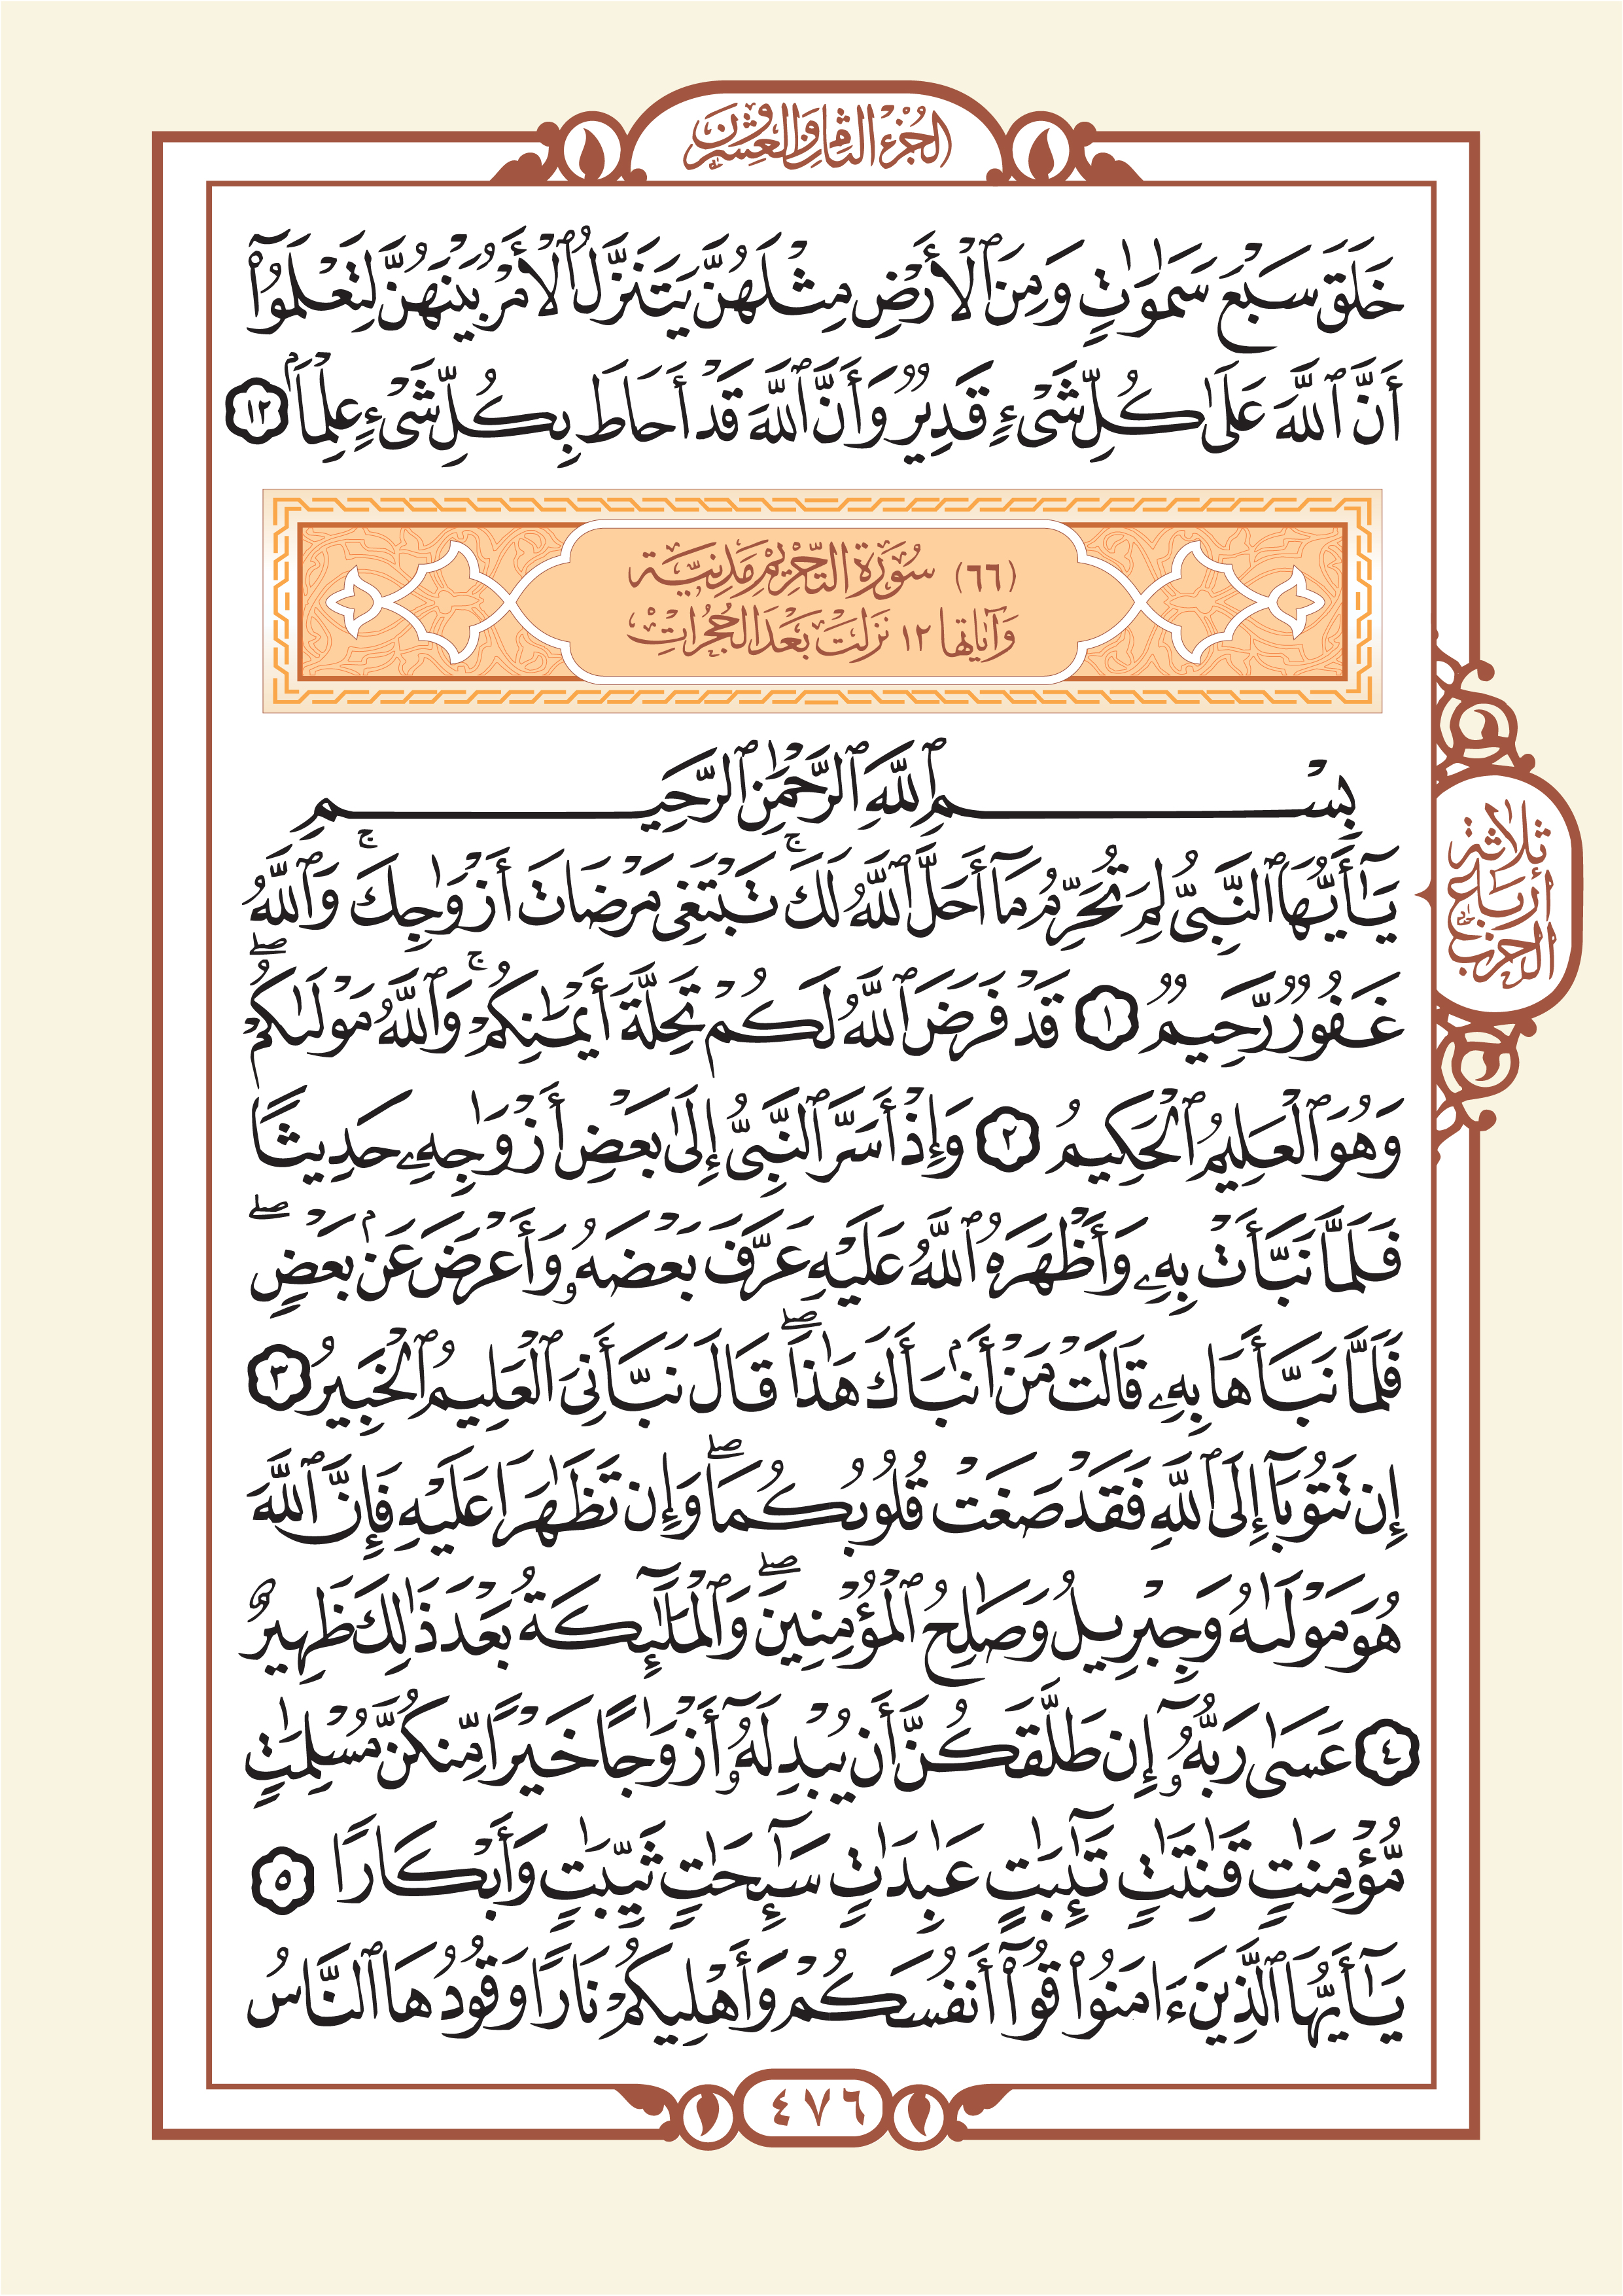 الجزء الثامن والعشرون
خَلَقَ سَبْعَ سَمَٰوَٰتٍ وَمِنَ ٱلْأَرْضِ مِثْلَهُنَّ يَتَنَزَّلُ ٱلْأَمْرُ بَيْنَهُنَّ لِتَعْلَمُوٓا۟
أَنَّ ٱللَّهَ عَلَىٰ كُلِّ شَىْءٍ قَدِيرٌ وَأَنَّ ٱللَّهَ قَدْ أَحَاطَ بِكُلِّ شَىْءٍ عِلْمًۢا ١٢
(٦٦) سُورَة التَّحْرِيمِ مَدَنِيَّة
وَآيَاتهَا ١٢ نَزَلَتْ بَعْدَ الحُجُرَاتْ
بِسْمِ ٱللَّهِ ٱلرَّحْمَٰنِ ٱلرَّحِيمِ
يَٰٓأَيُّهَا ٱلنَّبِىُّ لِمَ تُحَرِّمُ مَآ أَحَلَّ ٱللَّهُ لَكَ ۚ تَبْتَغِى مَرْضَاتَ أَزْوَٰجِكَ ۚ وَٱللَّهُ
غَفُورٌ رَّحِيمٌ ١ قَدْ فَرَضَ ٱللَّهُ لَكُمْ تَحِلَّةَ أَيْمَٰنِكُمْ ۚ وَٱللَّهُ مَوْلَىٰكُمْ ۖ
وَهُوَ ٱلْعَلِيمُ ٱلْحَكِيمُ ٢ وَإِذْ أَسَرَّ ٱلنَّبِىُّ إِلَىٰ بَعْضِ أَزْوَٰجِهِۦ حَدِيثًا
فَلَمَّا نَبَّأَتْ بِهِۦ وَأَظْهَرَهُ ٱللَّهُ عَلَيْهِ عَرَّفَ بَعْضَهُۥ وَأَعْرَضَ عَنۢ بَعْضٍ ۖ
فَلَمَّا نَبَّأَهَا بِهِۦ قَالَتْ مَنْ أَنۢبَأَكَ هَٰذَا ۖ قَالَ نَبَّأَنِىَ ٱلْعَلِيمُ ٱلْخَبِيرُ ٣
إِن تَتُوبَآ إِلَى ٱللَّهِ فَقَدْ صَغَتْ قُلُوبُكُمَا ۖ وَإِن تَظَٰهَرَا عَلَيْهِ فَإِنَّ ٱللَّهَ
هُوَ مَوْلَىٰهُ وَجِبْرِيلُ وَصَٰلِحُ ٱلْمُؤْمِنِينَ ۖ وَٱلْمَلَٰٓئِكَةُ بَعْدَ ذَٰلِكَ ظَهِيرٌ
٤ عَسَىٰ رَبُّهُۥٓ إِن طَلَّقَكُنَّ أَن يُبْدِلَهُۥٓ أَزْوَٰجًا خَيْرًا مِّنكُنَّ مُسْلِمَٰتٍ
مُّؤْمِنَٰتٍ قَٰنِتَٰتٍ تَٰٓئِبَٰتٍ عَٰبِدَٰتٍ سَٰٓئِحَٰتٍ ثَيِّبَٰتٍ وَأَبْكَارًا ٥
يَٰٓأَيُّهَا ٱلَّذِينَ ءَامَنُوا۟ قُوٓا۟ أَنفُسَكُمْ وَأَهْلِيكُمْ نَارًا وَقُودُهَا ٱلنَّاسُ
ثلاثة
أرباع
الحزب
٤٧٦